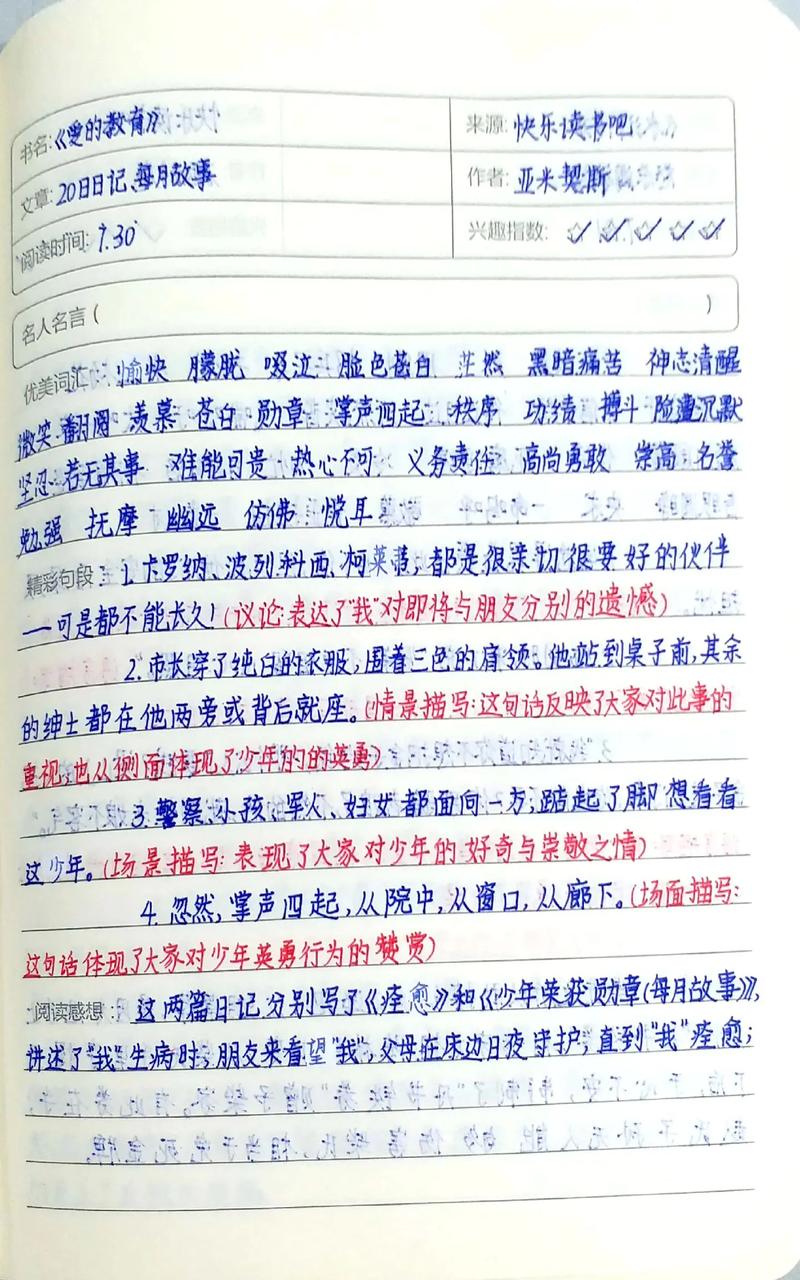 书名:《爱的教育》
来源:快乐读书吧
文章:20日日记、每月故事
作者:亚米契斯
阅读时间:7.30
兴趣指数:
名人名言( )
优美词汇: 愉快 朦胧 啜泣 脸色苍白 茫然 黑暗痛苦 神志清醒
微笑 翻阅 羡慕 苍白 勋章 掌声四起 秩序 功绩 搏斗 险遭沉默
坚忍 若无其事 难能可贵 热心不可 义务责任 高尚勇敢 崇高 名誉
勉强 抚摩 幽远 仿佛 悦耳
精彩句段: 1.卡罗纳、波列科西、柯莱蒂,都是很亲切很要好的伙伴
——可是都不能长久!(议论:表达了“我”对即将与朋友分别的遗憾)
2.市长穿了纯白的衣服,围着三色的肩领。他站到桌子前,其余
的绅士都在他两旁或背后就座。(情景描写:这句话反映了大家对此事的
重视,也从侧面体现了少年的的英勇)
3.警察、小孩、军人、妇女都面向一方;踮起了脚想看看
这少年。(场景描写:表现了大家对少年的好奇与崇敬之情)
4.忽然,掌声四起,从院中,从窗口,从廊下。(场面描写:
这句话体现了大家对少年英勇行为的赞赏)
阅读感想: 这两篇日记分别写了《痊愈》和《少年荣获勋章(每月故事)》,
讲述了“我”生病时,朋友来看望“我”,父母在床边日夜守护,直到“我”痊愈;